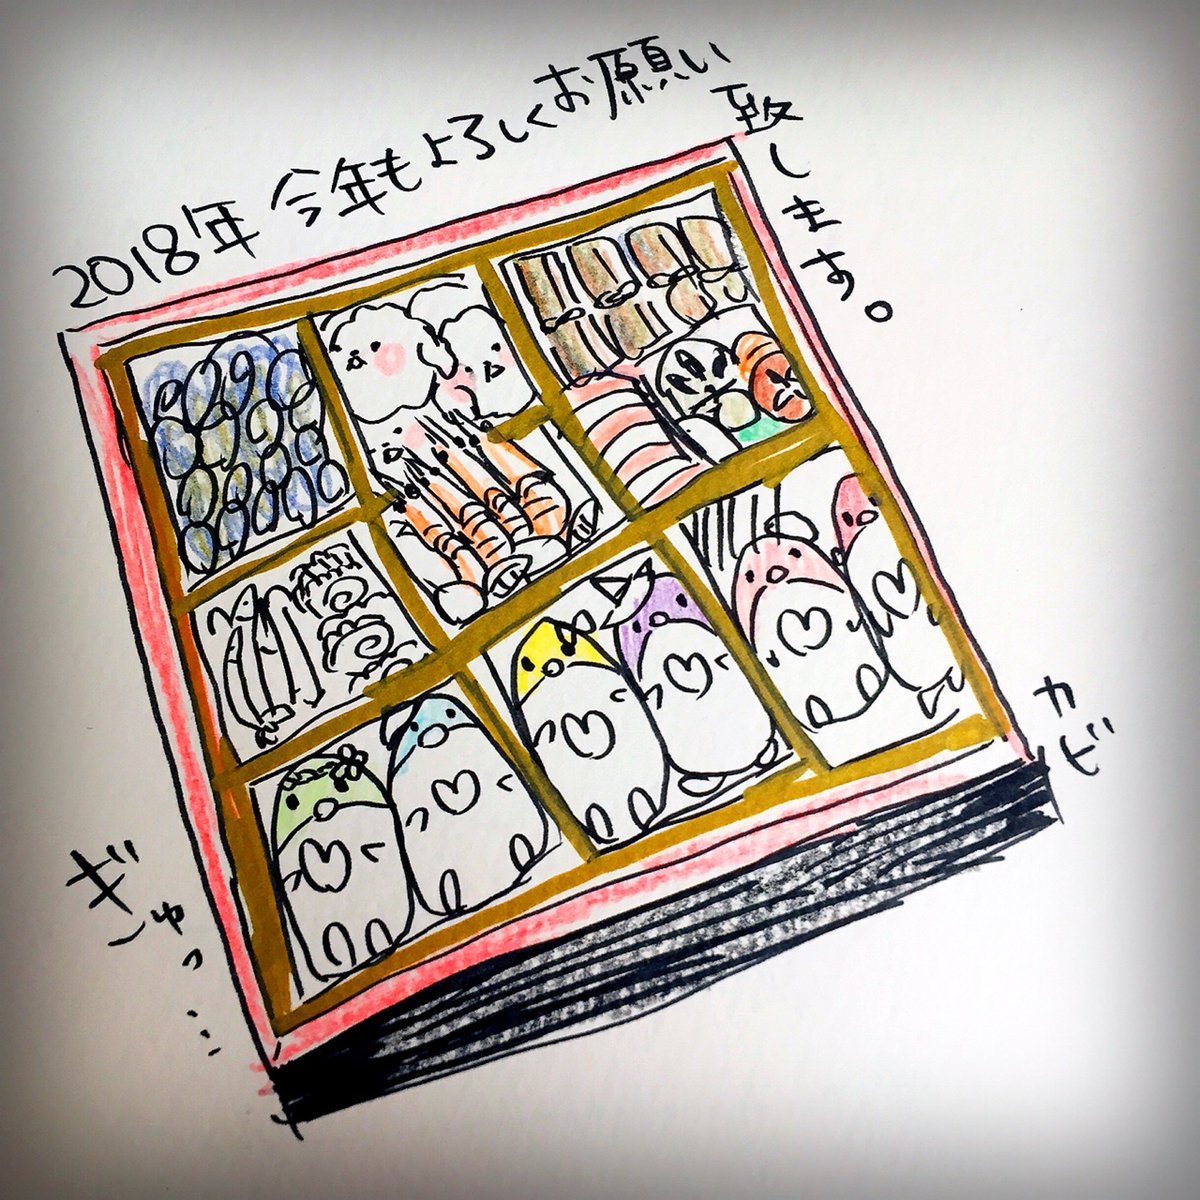 2018年 今年もよろしくお願い致します。
ギュっ…
カビ